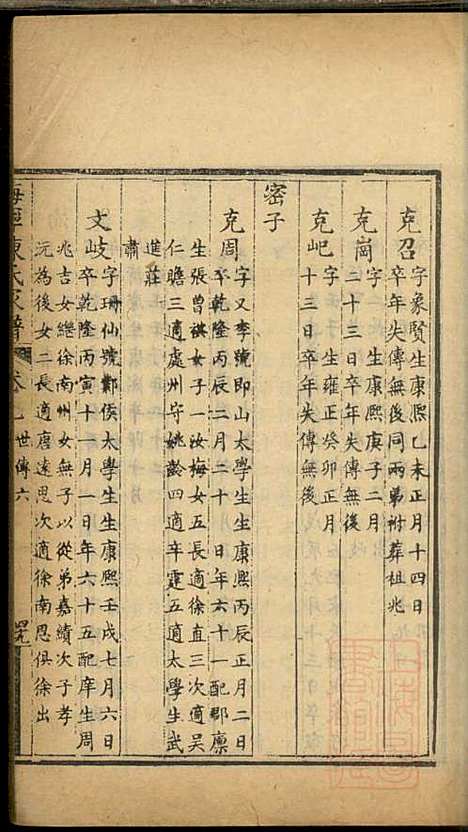 克召
字象賢生康熙乙未正月十四日
卒年失傳無後同兩弟祔葬祖兆
克崗
字 生康熙庚子二月
二十三日卒年失傳無後
克屺
字 生雍正癸卯正月
十三日卒年失傳無後
密子
克周
字又李號即山太學生生康熙丙辰正月二日
卒乾隆丙辰二月二十日年六十一配郡廩
生張曾祺女子一汝梅女五長適徐直三次適吳
仁瞻三適處州守姚齡四適辛霆五適太學生武
進莊
肅
文岐
字珊仙號鄴侯太學生生康熙壬戌七月六日
卒乾隆丙寅十一月一日年六十五配庠生周
兆吉女繼徐南州女無子以從弟嘉績次子孝
沅為後女二長適唐遠思次適徐南恩俱徐出
海寧陳氏家譜
卷七
世傳六